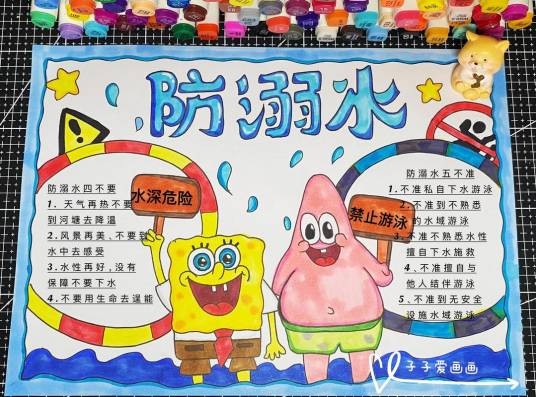 防溺水
水深危险
禁止游泳
防溺水四不要
1. 天气再热不要
到河塘去降温
2.风景再美、不要到
水中去感受
3.水性再好,没有
保障不要下水
4.不要用生命去逞能
防溺水五不准
1.不准私自下水游泳
2.不准到不熟悉
的水域游泳
3.不准不熟悉水性
擅自下水施救
4、不准擅自与
他人结伴游泳
5、不准到无安全
设施水域游泳
子子爱画画